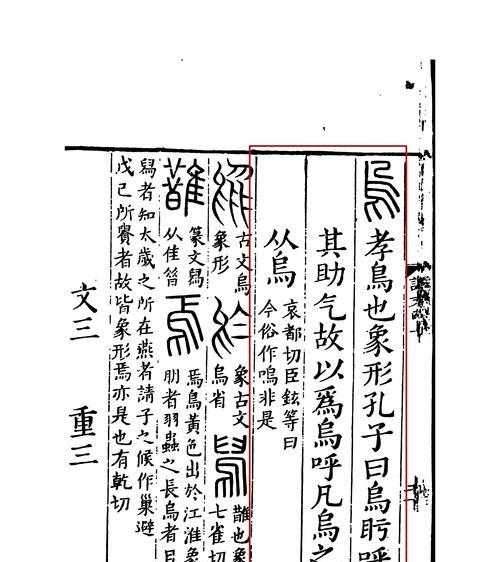 烏孝鳥也象形孔子曰烏盱呼
其助气故以爲烏呼凡烏之
从烏哀都切臣鉉等曰
今俗作嗚非是
古文烏
象形
於
象古文
烏省
舄
䧿也象
七雀切
䧿
篆文舄
从隹㫺
焉
焉鳥黃色出於江淮象
朋者羽蟲之長烏者日
舄者知太歲之所在燕者請子之候作巢避
戊己所貴者故皆象形焉亦是也有乾切
文三 重三